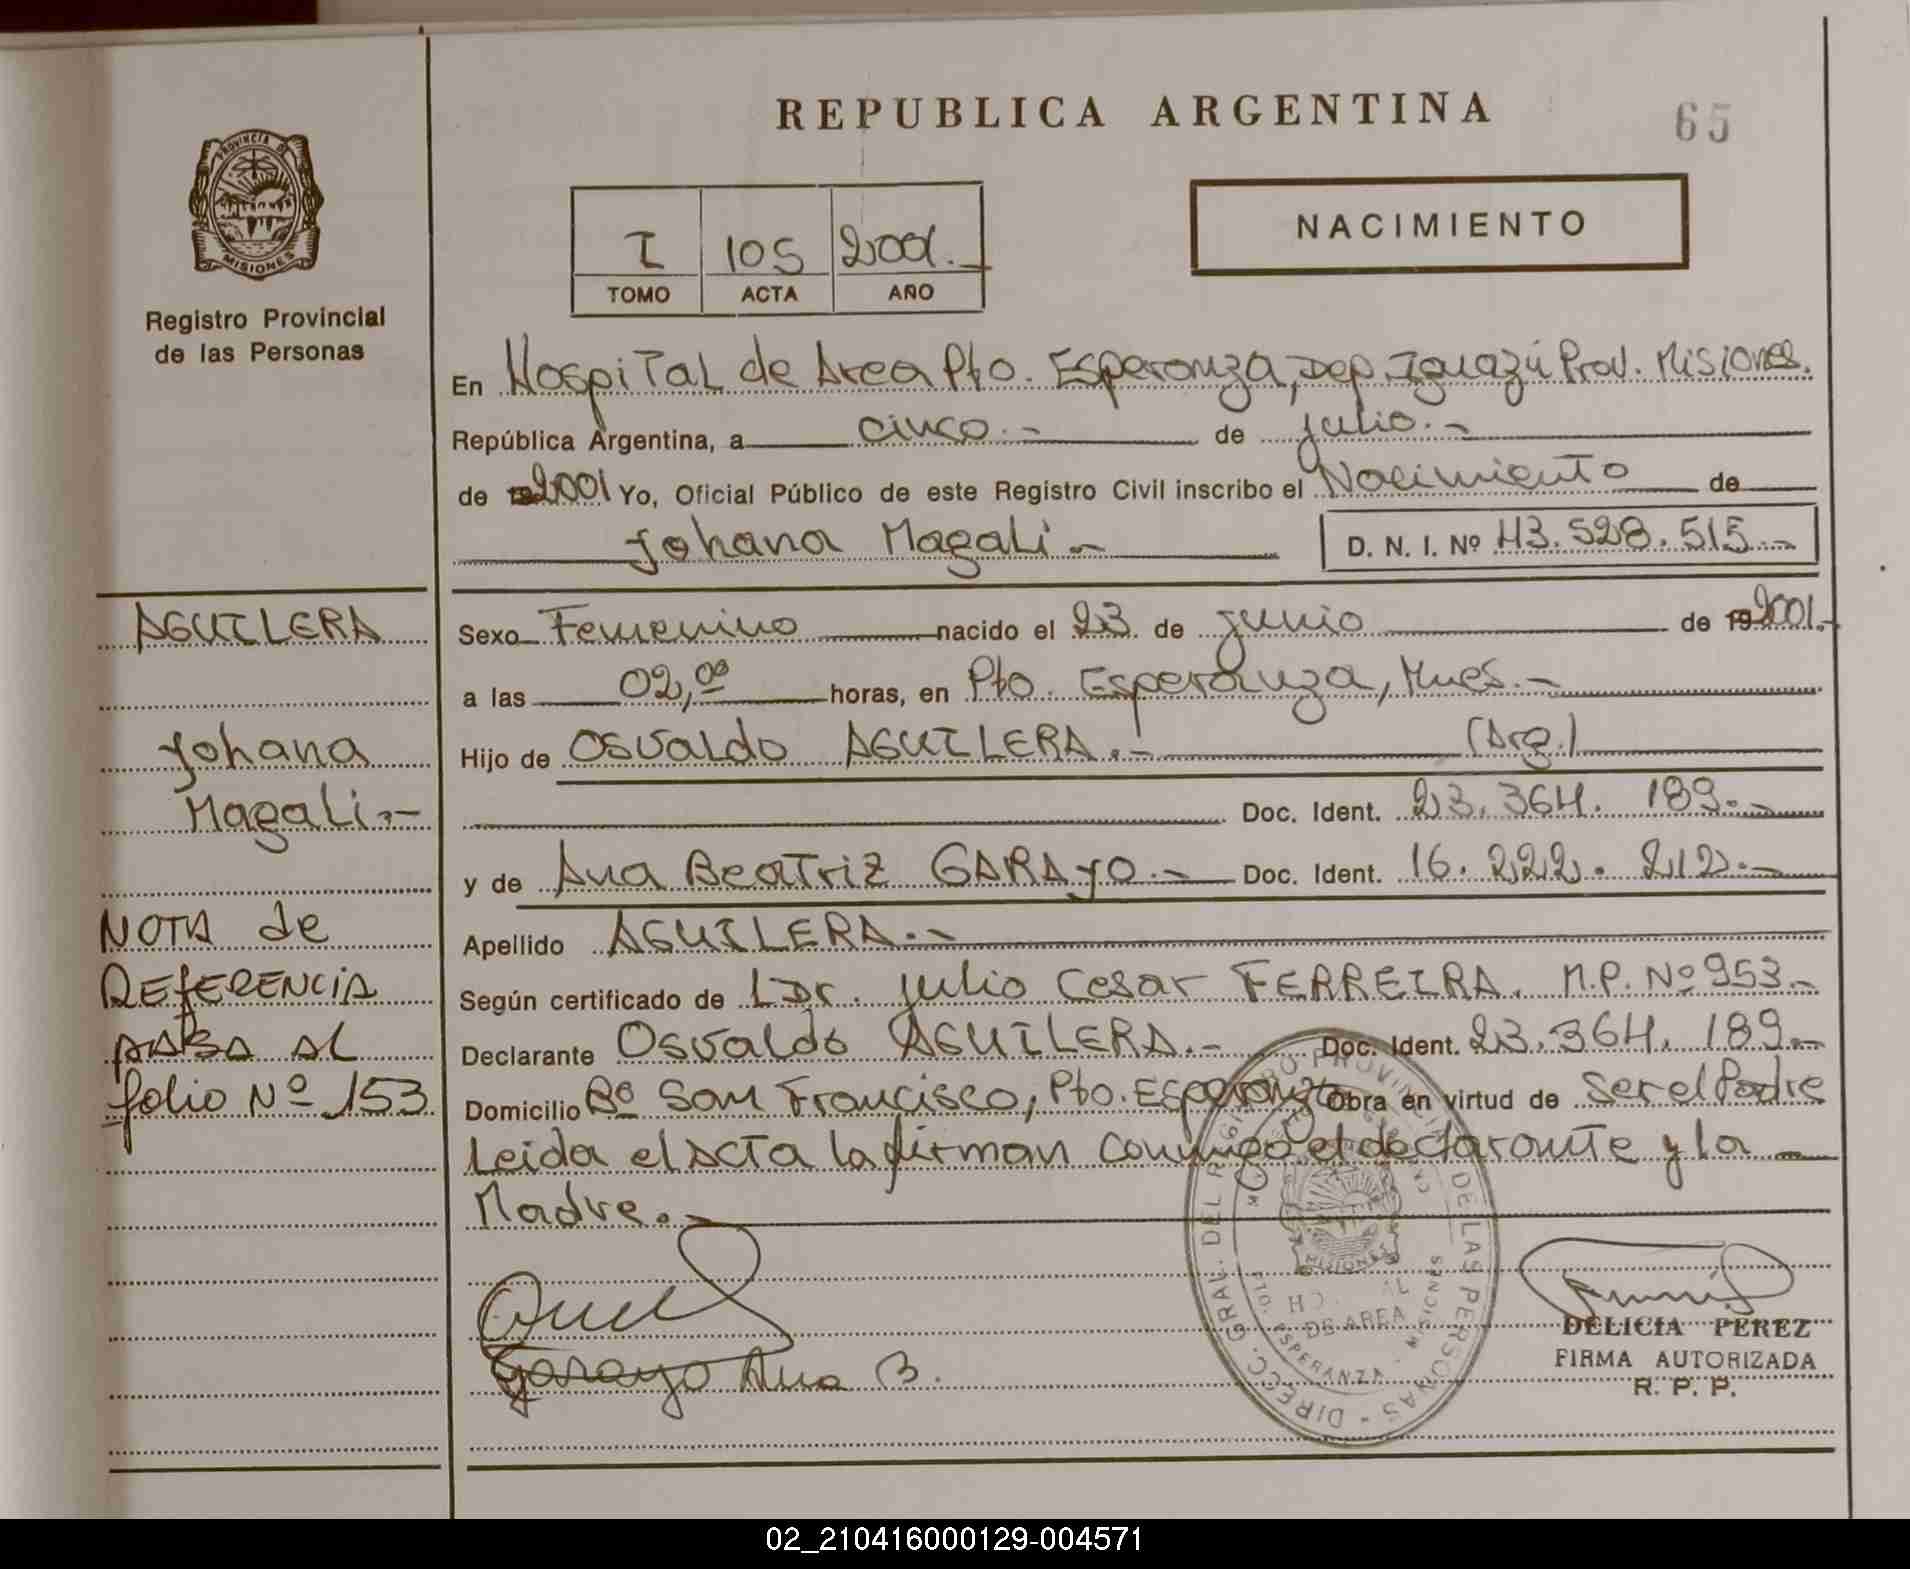 REPUBLICA ARGENTINA
65
PROVINCIA DE
MISIONES
Registro Provincial
de las Personas
I 105 2001.-
TOMO ACTA AÑO
NACIMIENTO
En Hospital de Area Pto. Esperanza, Dep. Iguazú Prov. Misiones.
República Argentina, a cinco.- de julio.-
de 2001 Yo, Oficial Público de este Registro Civil inscribo el Nacimiento de
Johana Magali.- D. N. I. Nº 43.528.515.-
AGUILERA
Johana
Magali.-
NOTA de
REFERENCIA
PASA AL
folio Nº 153
Sexo Femenino nacido el 23 de junio de 192001.-
a las 02,00 horas, en Pto. Esperanza, Mnes.-
Hijo de Osvaldo AGUILERA.- (Arg.)
Doc. Ident. 23.364.189.-
y de Ana Beatriz GARAYO.- Doc. Ident. 16.222.212.-
Apellido AGUILERA.-
Según certificado de Dr. Julio Cesar FERREIRA. M.P. Nº 953.-
Declarante Osvaldo AGUILERA.- Doc. Ident. 23.364.189.-
Domicilio Bº San Francisco, Pto. Esperanza Obra en virtud de Ser el Padre
Leida el acta la firman conmigo el declarante y la
Madre.-
Garayo Ana B.
DIRECC. GRAL. DEL REGISTRO PROVINCIAL DE LAS PERSONAS
MISIONES
DE AREA
PTO. ESPERANZA - MISIONES
DELICIA PEREZ
FIRMA AUTORIZADA
R. P. P.
02_210416000129-004571